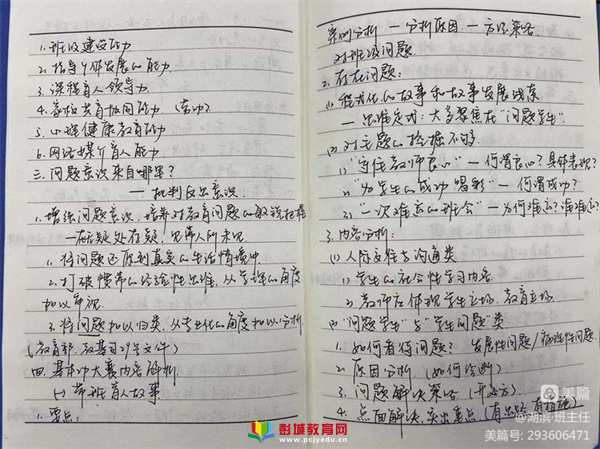 1.班级建设能力
2.指导个体发展的能力
3.课程育人领导力
4.家校共育协同能力(素功)
5.心理健康教育能力
6.网络媒介育人能力
三.问题意识来自哪里?
—批判反思意识
1.增强问题意识,培养对教育问题的敏锐把握
—在无疑处存疑,见常人所未见
1.将问题还原到真实的生活情境中
2.打破惯常的经验性思维,从学理的角度
加以审视
3.将问题加以归类,从专业化的角度加以分析
(教育部,教基司29号文件)
四.基本功大赛内容解析
(一)带班育人故事
1.要点:
案例分析—分析原因—方法策略
对班级问题
2.存在问题:
(1)程式化的故事和故事发展线条
—思维定式:大多聚焦在"问题学生"
(2)对主题的挖掘不够
1)"守住教师良心"—何谓良心?具体表现?
2)"为学生的成功喝彩"—何谓成功?
3)"一次难忘的班会"—为何难忘?谁难忘?
3.内容分析:
(1)人际交往与沟通类
1)学生的社会性学习内容
2)教师应体现学生立场、教育立场
(2)"问题学生"与"学生问题"类
1.如何看待问题?发展性问题/病理性问题
2.原因分析(如何诊断)
3.问题解决策略(开处方)
4.点面解决,突出重点(有思路,有措施)
彭城教育网
www.pcjyedu.cn
美篇
@湖滨·班主任
美篇号:293606471